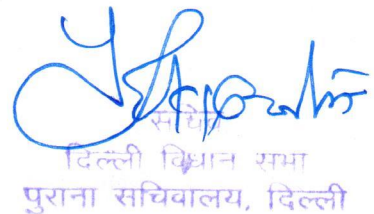 सचिव
दिल्ली विधान सभा
पुराना सचिवालय, दिल्ली